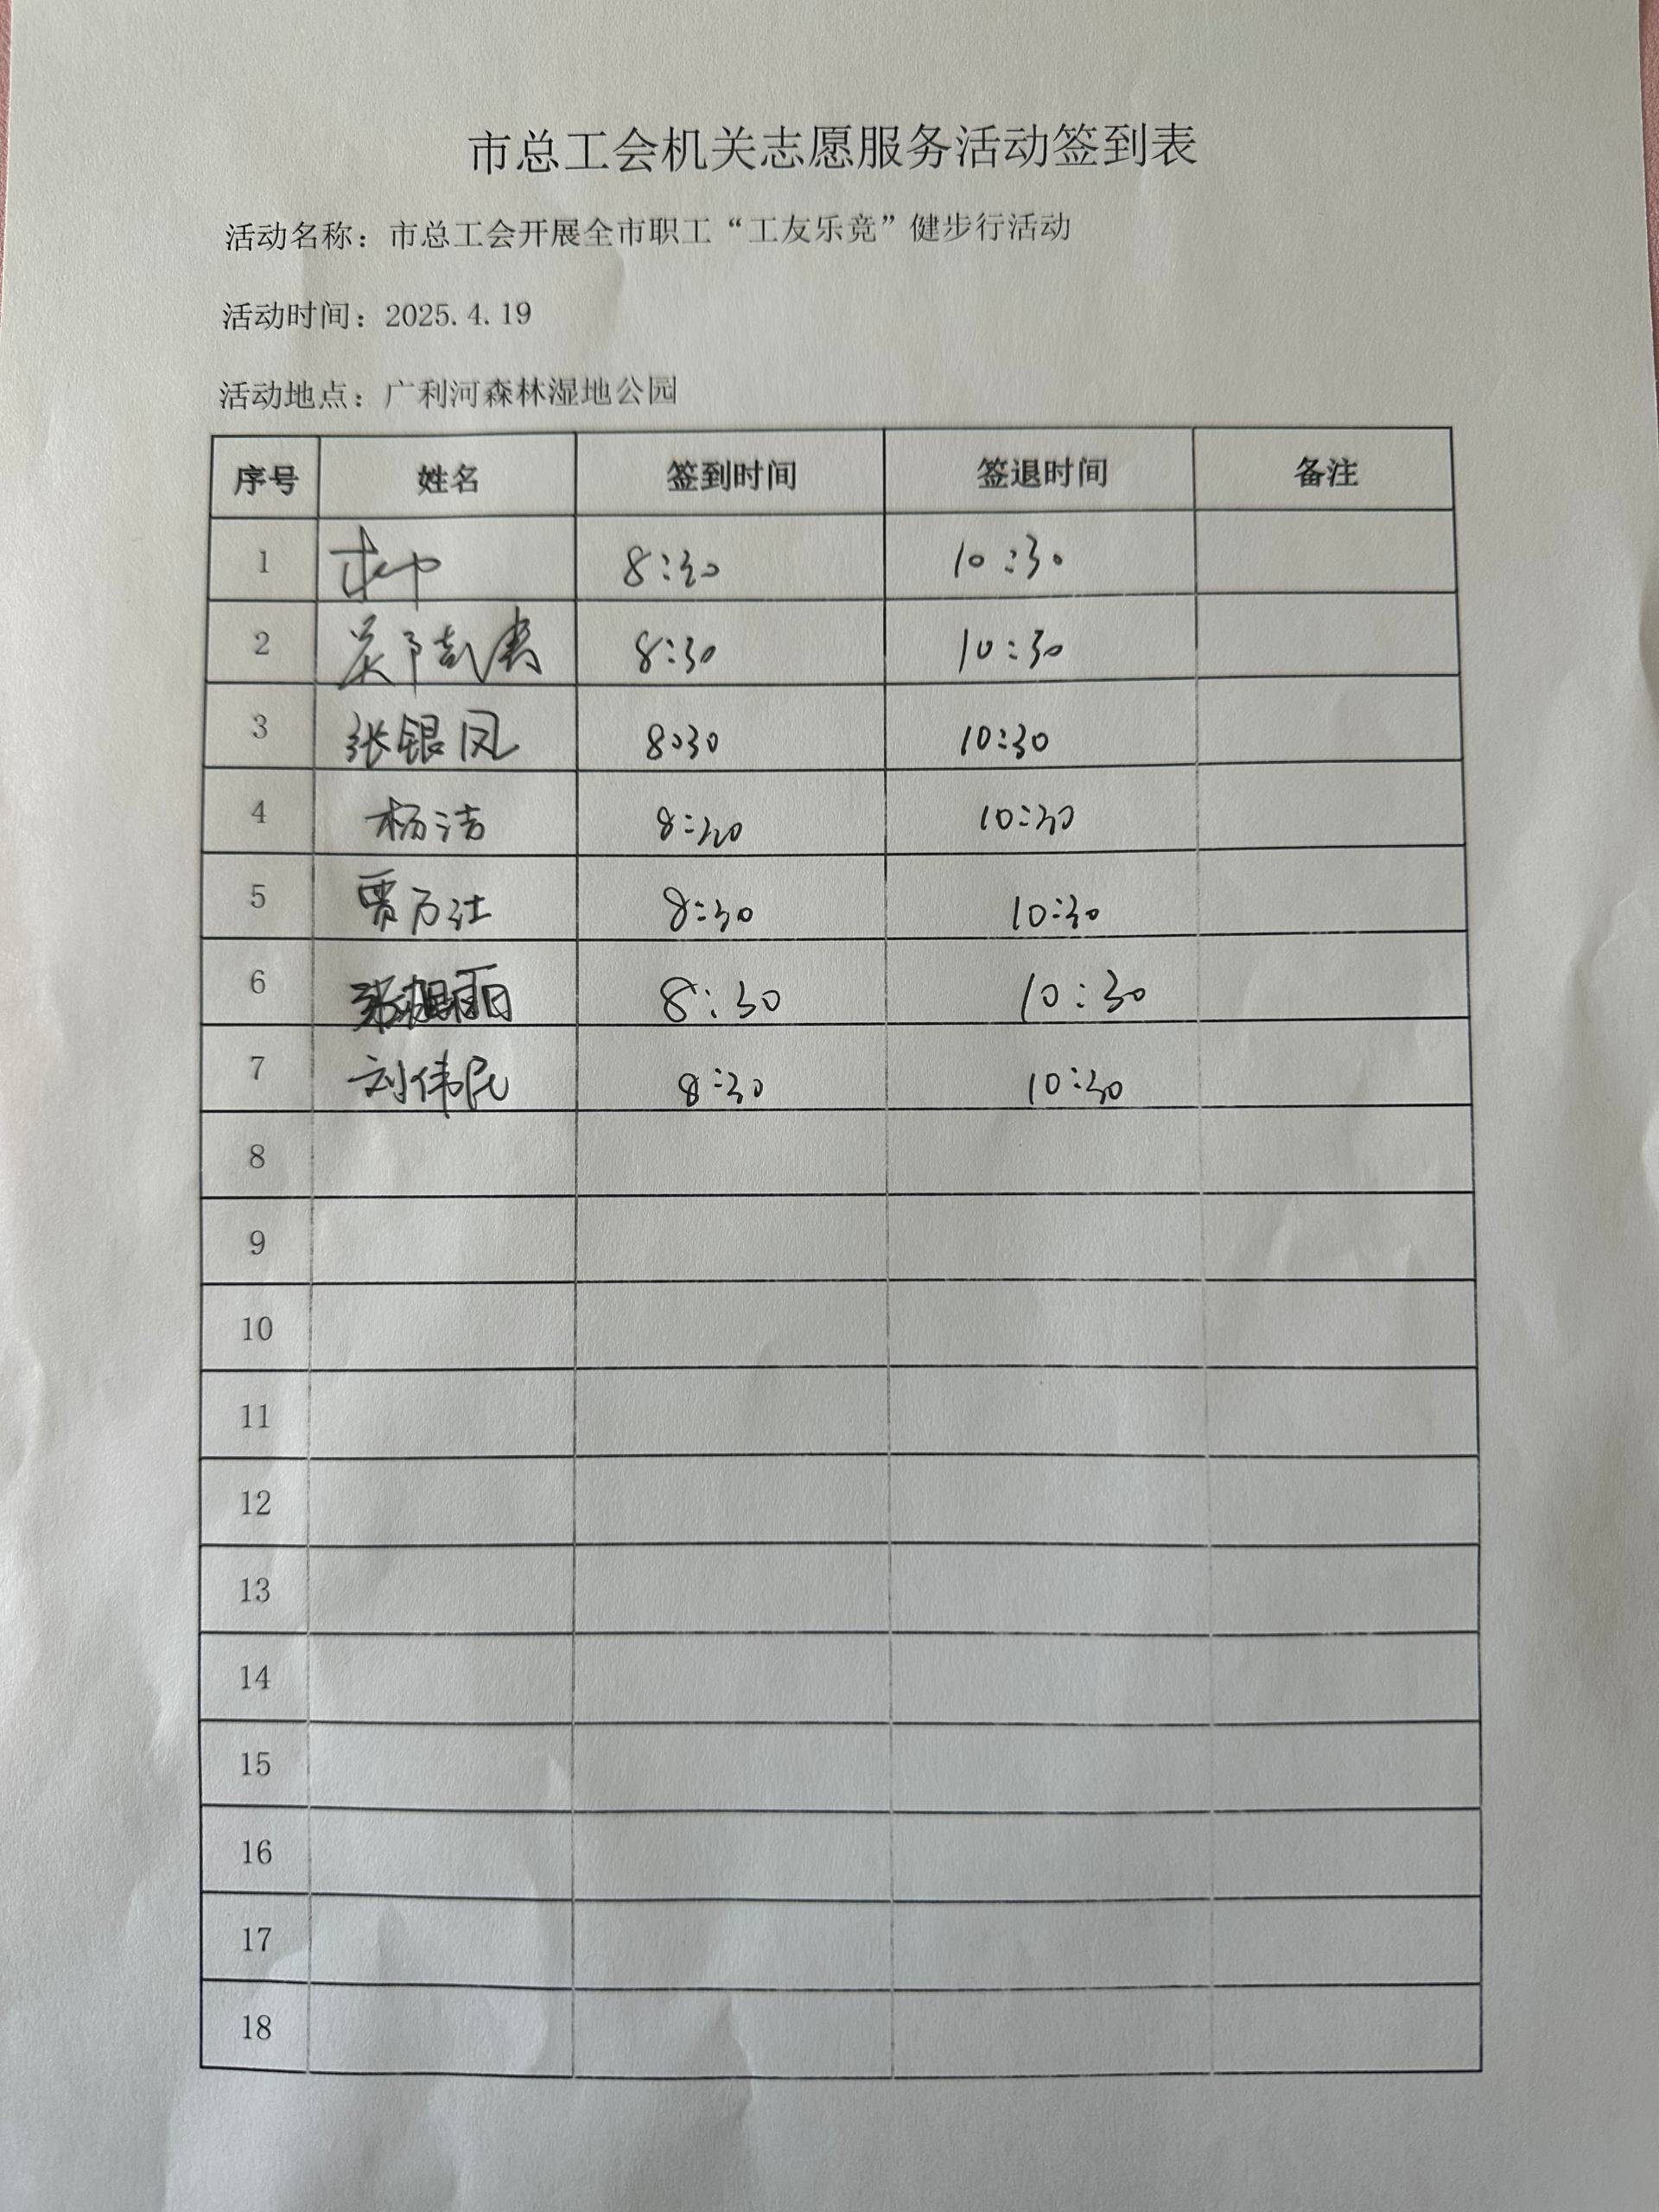 市总工会机关志愿服务活动签到表
活动名称：市总工会开展全市职工“工友乐竞”健步行活动
活动时间：2025.4.19
活动地点：广利河森林湿地公园
序号 姓名 签到时间 签退时间 备注
1 8:30 10:30
2 8:30 10:30
3 张银凤 8:30 10:30
4 杨洁 8:30 10:30
5 贾万社 8:30 10:30
6 8:30 10:30
7 刘伟民 8:30 10:30
8
9
10
11
12
13
14
15
16
17
18